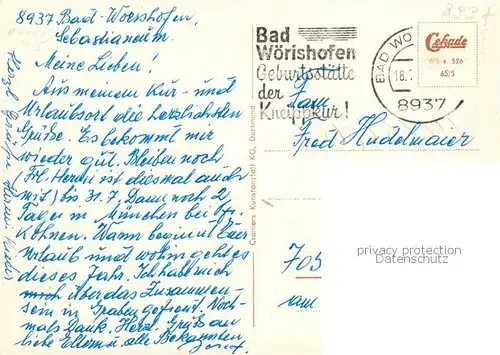 8937 Bad-Wörishofen,
Sebastianeum.
Meine Lieben!
Aus meinem Kur- und
Urlaubsort die herzlichsten
Grüße. Es bekommt mir
wieder gut. Bleiben noch
(Frl. Hermi ist diesmal auch
mit) bis 31.7. Dann noch 2
Tage in München bei
Wann beginnt Euer
Urlaub und wohin geht es
dieses Jahr. Ich habe mich
über das Zusammen-
sein in Graben gefreut. Noch-
mals Dank. Herzl. Grüße an
liebe Eltern u. alle Bekannten
Josef
Herzl. Grüße Hermi
Cramers Kunstanstalt KG, Dortmund
Bad
Wörishofen
Geburtsstätte
der
Kneippkur!
BAD WO
18.
8937
8937
Cekade
WS + 526
65/5
Fam.
Fred Hudelmaier
705
am
privacy protection
Datenschutz